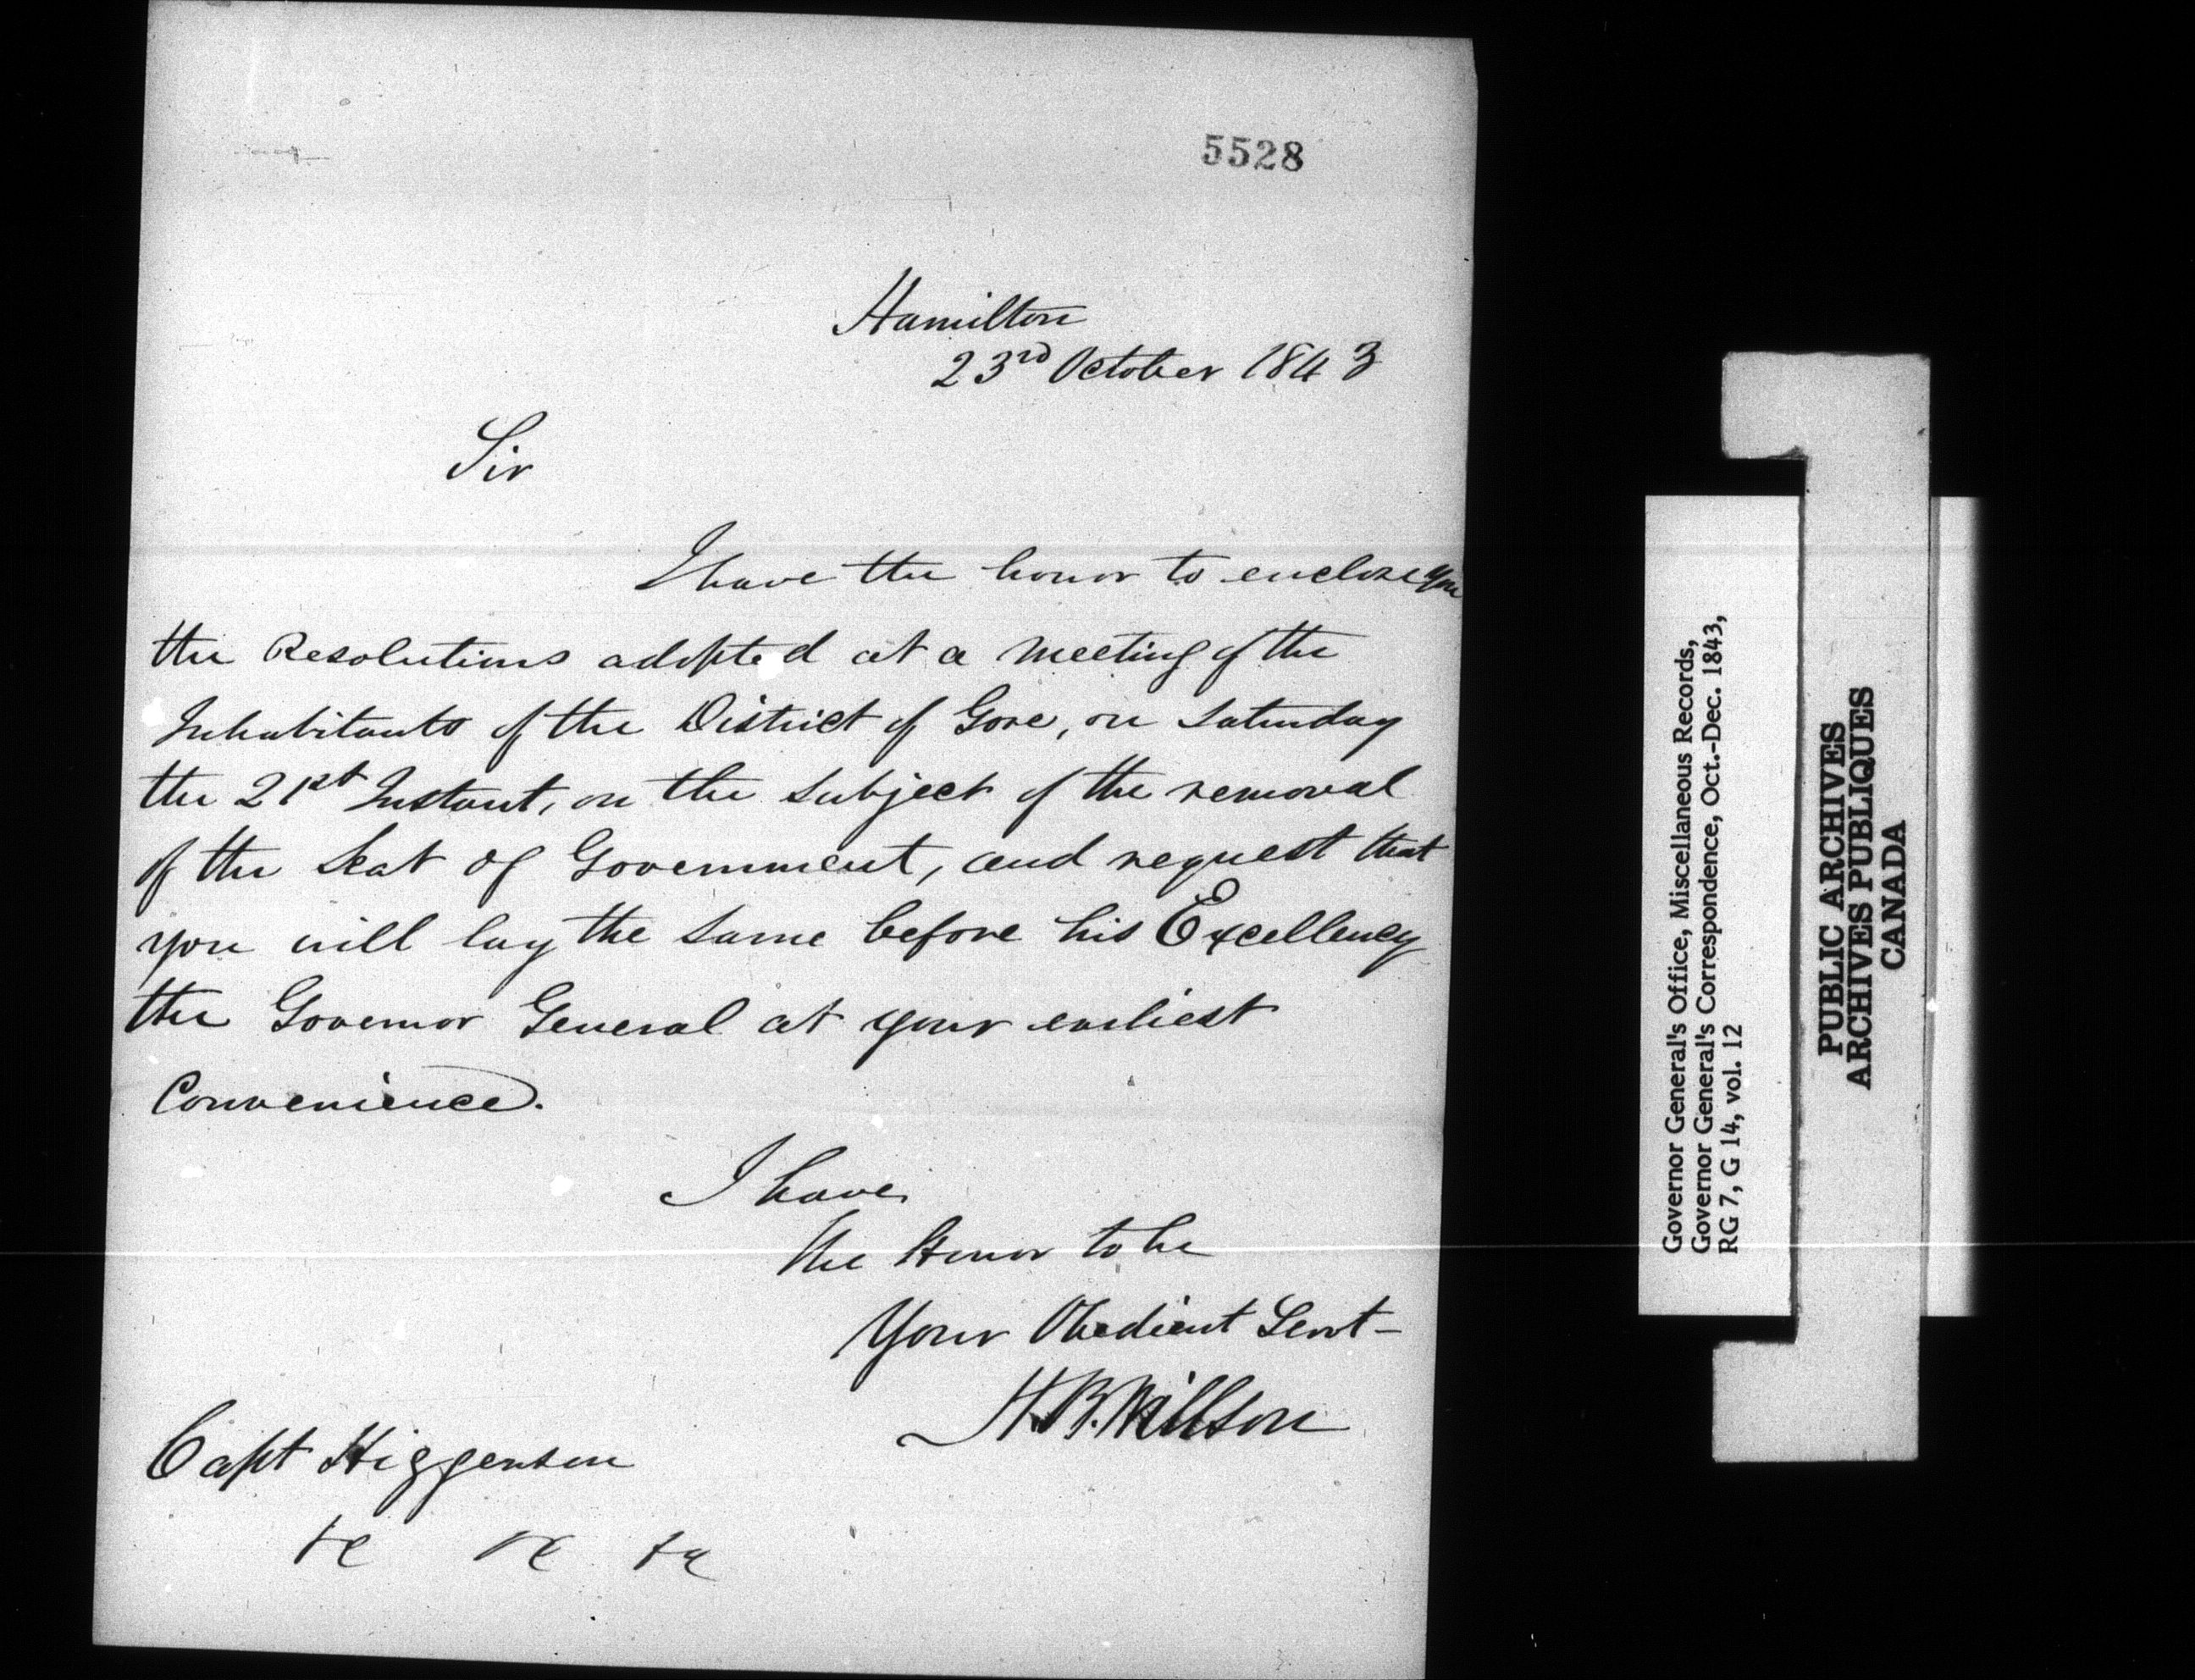 5528
Hamilton
23rd October 1843
Sir
I have the honor to enclose you
the Resolutions adopted at a Meeting of the
Inhabitants of the District of Gore, on Saturday
the 21st Instant, on the Subject of the removal
of the Seat of Government, and request that
you will lay the Same before his Excellency
the Governor General at your earliest
Convenience.
I have
the Honor to be
Your Obedient Servt
H.B. Willson
Capt Higgenson
&c &c &c
Governor General's Office, Miscellaneous Records,
Governor General's Correspondence, Oct.-Dec. 1843,
RG 7, G 14, vol. 12
PUBLIC ARCHIVES
ARCHIVES PUBLIQUES
CANADA